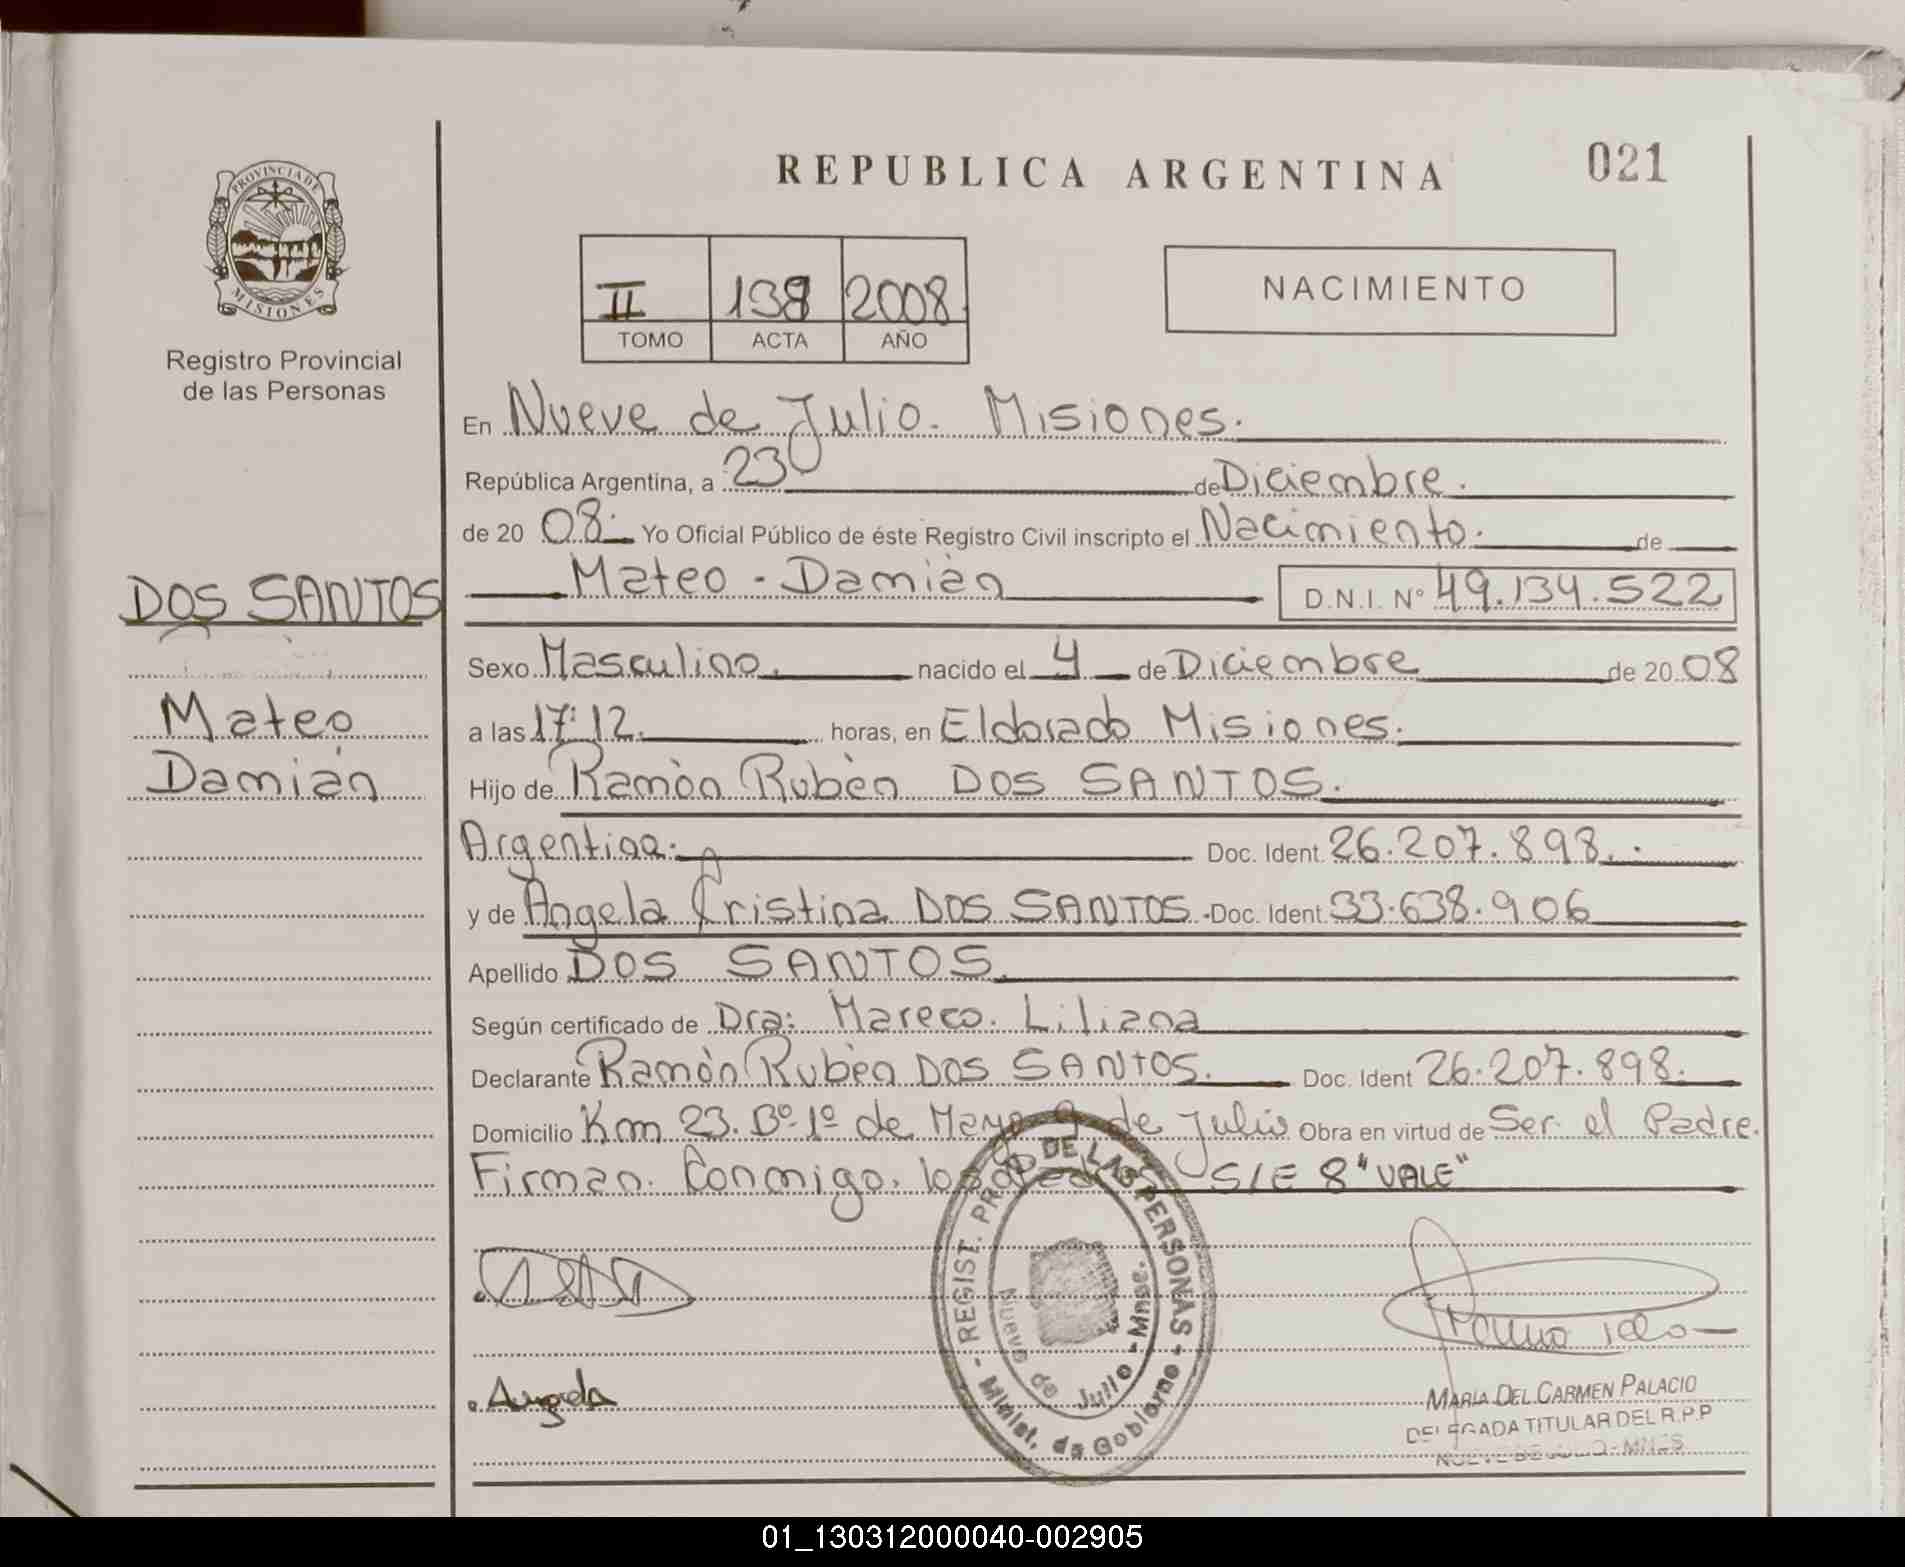 REPUBLICA ARGENTINA
021
PROVINCIA DE
MISIONES
Registro Provincial
de las Personas
II 138 2008
TOMO ACTA AÑO
NACIMIENTO
En Nueve de Julio. Misiones.
República Argentina, a 23 de Diciembre.
de 20 08. Yo Oficial Público de éste Registro Civil inscripto el Nacimiento. de
DOS SANTOS
Mateo
Damián
Mateo - Damián D.N.I. N° 49.134.522
Sexo Masculino. nacido el 4 de Diciembre de 20 08
a las 17:12. horas, en Eldorado Misiones.
Hijo de Ramòn Rubèn DOS SANTOS.
Argentina. Doc. Ident. 26.207.898.
y de Angela Cristina DOS SANTOS - Doc. Ident. 33.638.906
Apellido DOS SANTOS.
Según certificado de Dra: Mareco. Liliana
Declarante Ramòn Rubèn DOS SANTOS. Doc. Ident 26.207.898.
Domicilio Km 23. Bº 1º de Mayo 9 de Julio Obra en virtud de Ser el Padre.
Firman. Conmigo. los S/E 8 "VALE"
REGIST. PROV. DE LAS PERSONAS
Nueve de Julio - Mnes.
Minist. de Gobierno
Angela
MARIA DEL CARMEN PALACIO
DELEGADA TITULAR DEL R.P.P
NUEVE DE JULIO - MNES
01_130312000040-002905